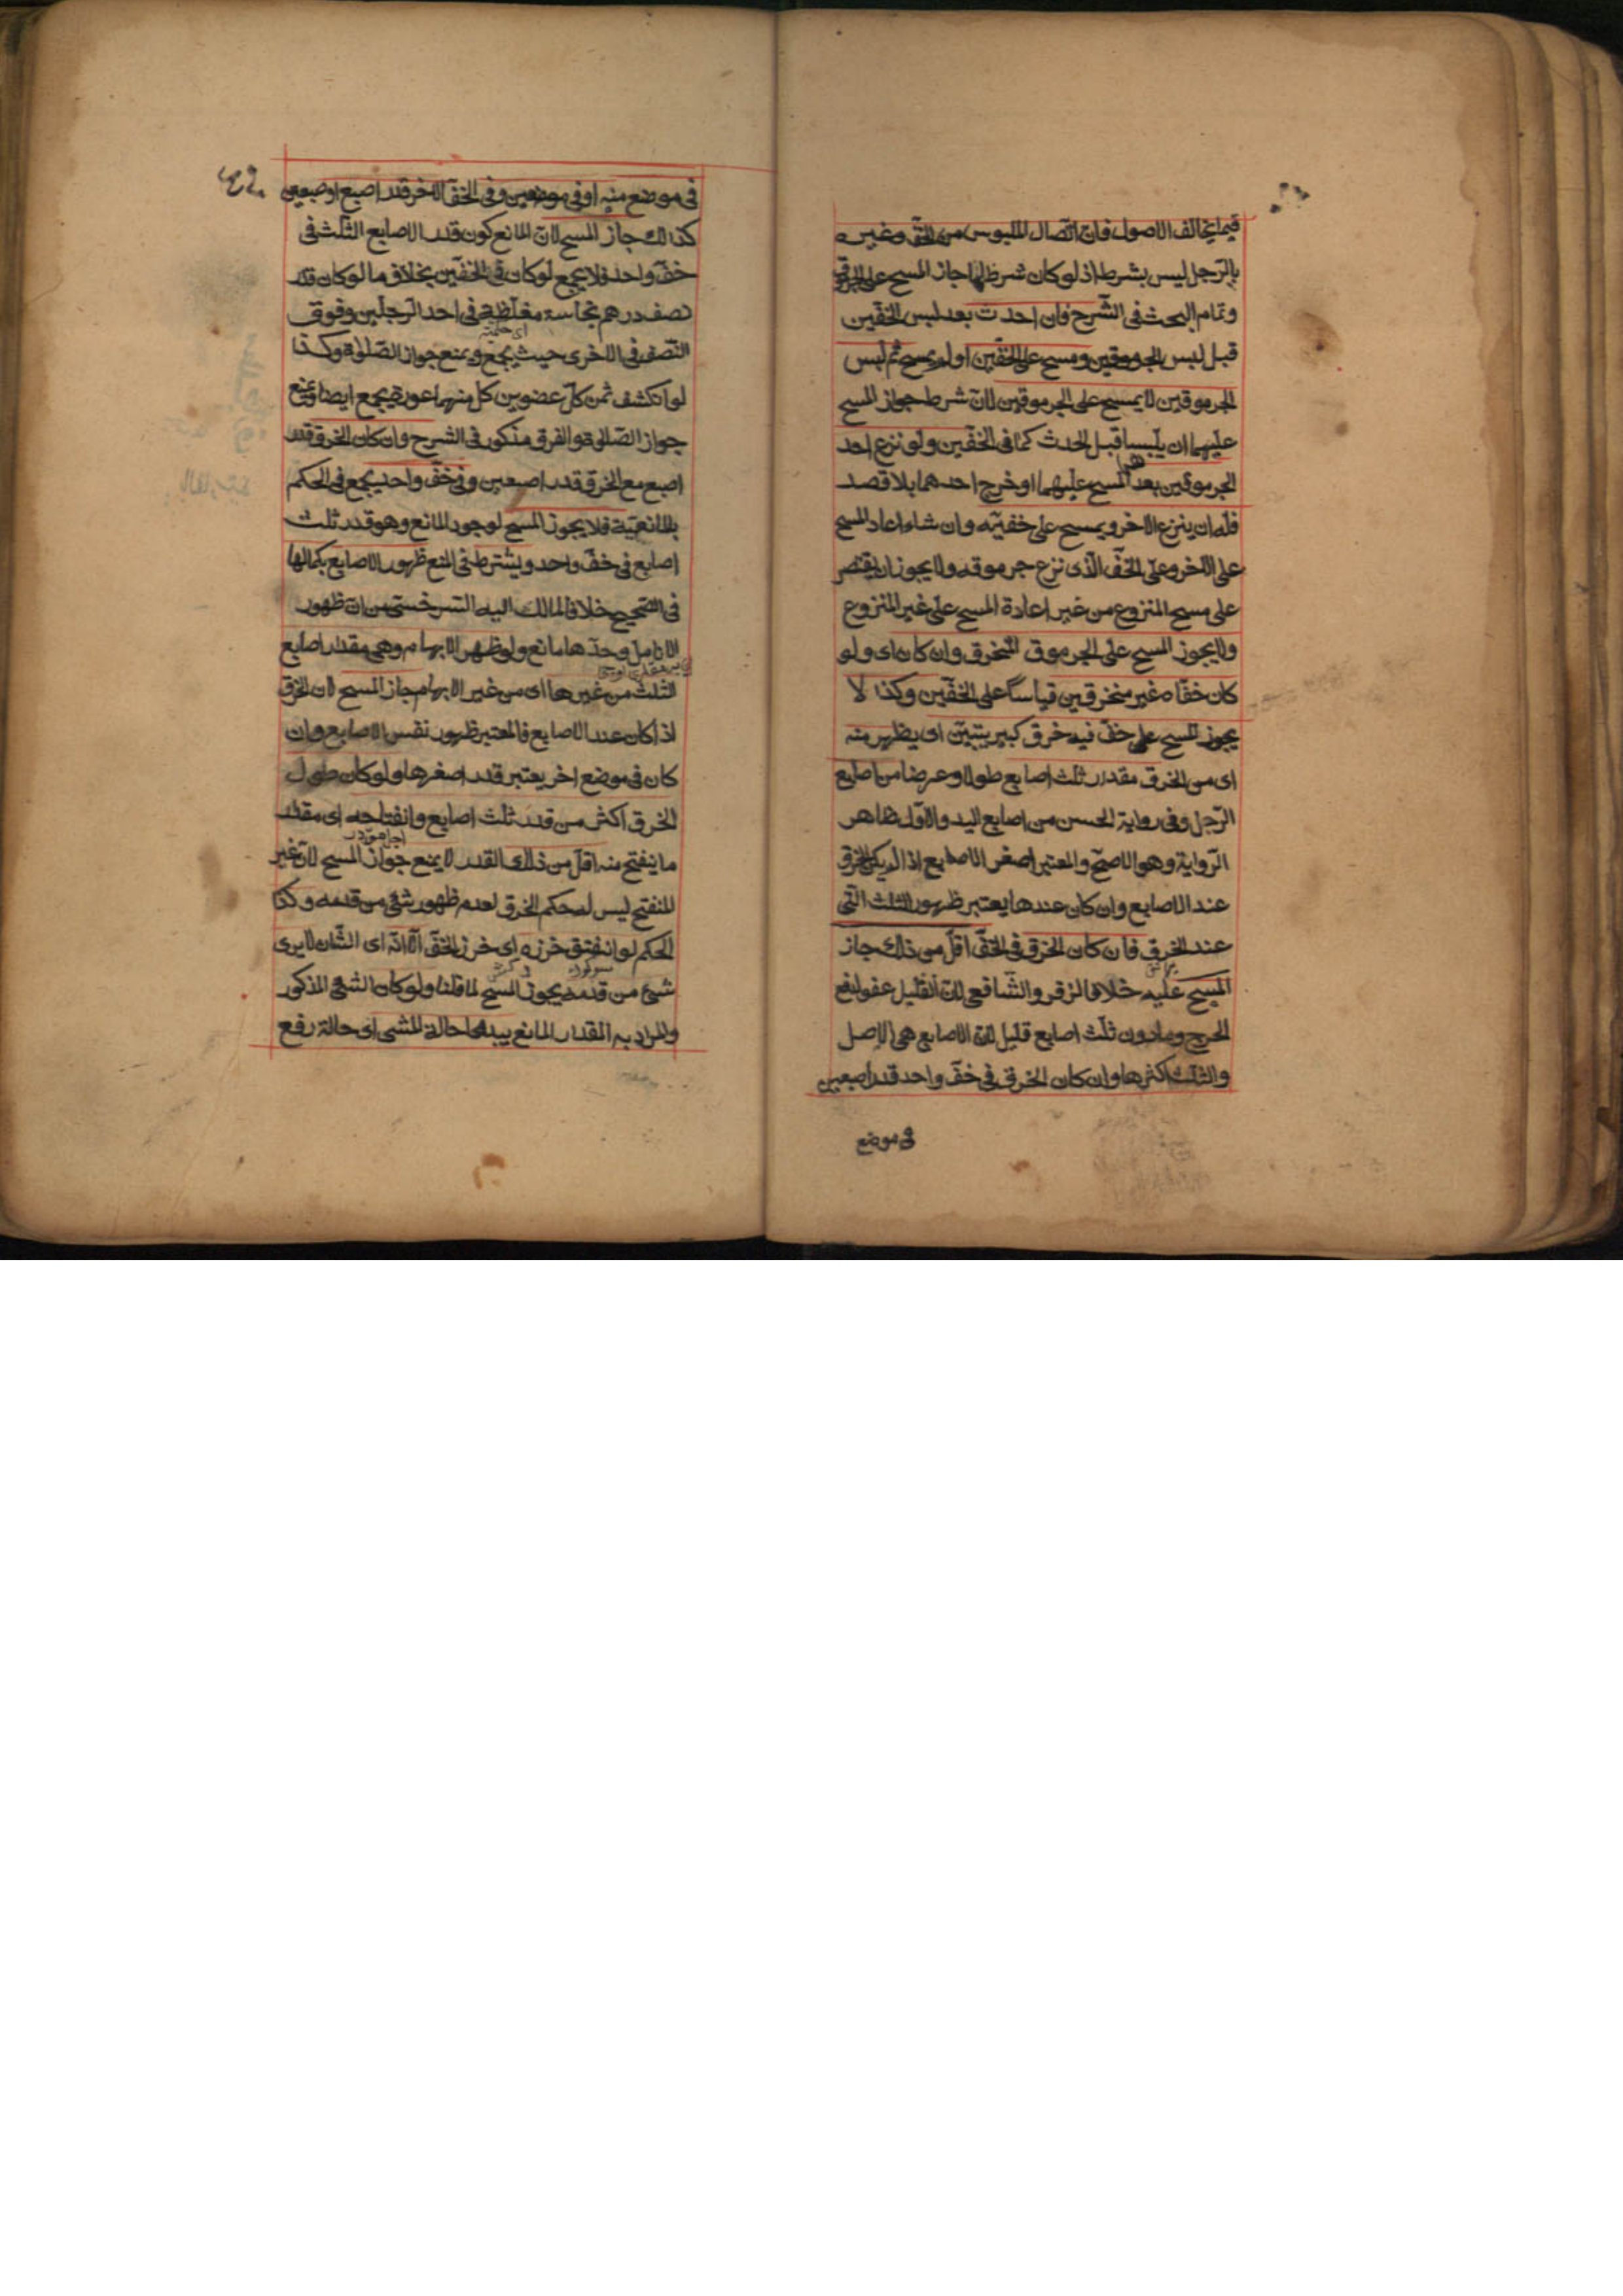 فيما يخالف الاصول فان اتصال الملبوس من الخف وغيره
بالرّجل ليس بشرط اذ لو كان شرطا لما جاز المسح على الجرموق
وتمام البحث فى الشّرح فان احدث بعد لبس الخفّين
قبل لبس الجرموقين ومسح على الخفّين او لم يمسح ثم لبس
الجرموقين لا يمسح على الجرموقين لانّ شرط جواز المسح
عليهما ان يلبسا قبل الحدث كما فى الخفّين ولو نزع احد
الجرموقين بعد المسح عليهما او خرج احدهما بلا قصد
فله ان ينزع الآخر ويمسح على خفيّه وان شاء اعاد المسح
على الآخر وعلى الخفّ الّذى نزع جرموقه ولا يجوز ان يقتصر
على مسح المنزوع من غير اعادة المسح على غير المنزوع
ولا يجوز المسح على الجرموق المتخرق وان كان اى ولو
كان خفاه غير منخرقين قياسا على الخفّين وكذا لا
يجوز المسح على خفّ فيه خرق كبير يتبيّن اى يظهر منه
اى من الخرق مقدار ثلث اصابع طولا وعرضا من اصابع
الرّجل وفى رواية الحسن من اصابع اليد والاوّل ظاهر
الرّواية وهو الاصحّ والمعتبر اصغر الاصابع اذا لم يكن الخرق
عند الاصابع وان كان عندها يعتبر ظهور الثلث التى
عند الخرق فان كان الخرق فى الخفّ اقلّ من ذلك جاز
المسح عليه خلافا لزفر والشّافعى لانّ القليل عفو لدفع
الحرج وما دون ثلث اصابع قليل لانّ الاصابع هى الاصل
والثلث اكثرها وان كان الخرق فى خفّ واحد قدر اصبعين
فى موضع
فى موضع منه او فى موضعين وفى الخفّ الآخر قدر اصبع او صبعين
كذالك جاز المسح لانّ المانع كون قدر الاصابع الثلث فى
خفّ واحد فلا يجمع لو كان فى الخفّين بخلاف ما لو كان قدر
نصف درهم نجاسة مغلّظة فى احد الرّجلين وفوق
النّصف فى الاخرى حيث يجمع ويمنع جواز الصّلوة وكذا
لو انكشف ثمن كلّ عضوين كل منهما عورة يجمع ايضا ويمنع
جواز الصّلوة والفرق مذكور فى الشرح وان كان الخرق قدر
اصبع مع الخرق قدر اصبعين وفى خفّ واحد يجمع فى الحكم
بالمانعيّة فلا يجوز المسح لوجود المانع وهو قدر ثلث
اصابع فى خفّ واحد ويشترط فى المنع ظهور الاصابع بكمالها
فى الصّحيح خلافا لما مال اليه السّرخسى من انّ ظهور
الانامل وحدها مانع ولو ظهر الابهام وهى مقدار اصابع
الثلث من غيرها اى من غير الابهام جاز المسح لان الخرق
اذا كان عند الاصابع فالمعتبر ظهور نفس الاصابع وان
كان فى موضع اخر يعتبر قدر اصغرها ولو كان طول
الخرق اكثر من قدر ثلث اصابع وانفتاحه اى مقدار
ما ينفتح منه اقلّ من ذلك القدر لا يمنع جواز المسح لانّ غير
المنفتح ليس له حكم الخرق لعدم ظهور شئ من قدمه وكذا
الحكم لو انفتق خرزه اى خرز الخفّ الّا انّه اى الشّان لا يرى
شئ من قدمه يجوز المسح لما قلنا ولو كان الشئ المذكور
والمراد به المقدار المانع يبدو حالة المشى اى حالة رفع